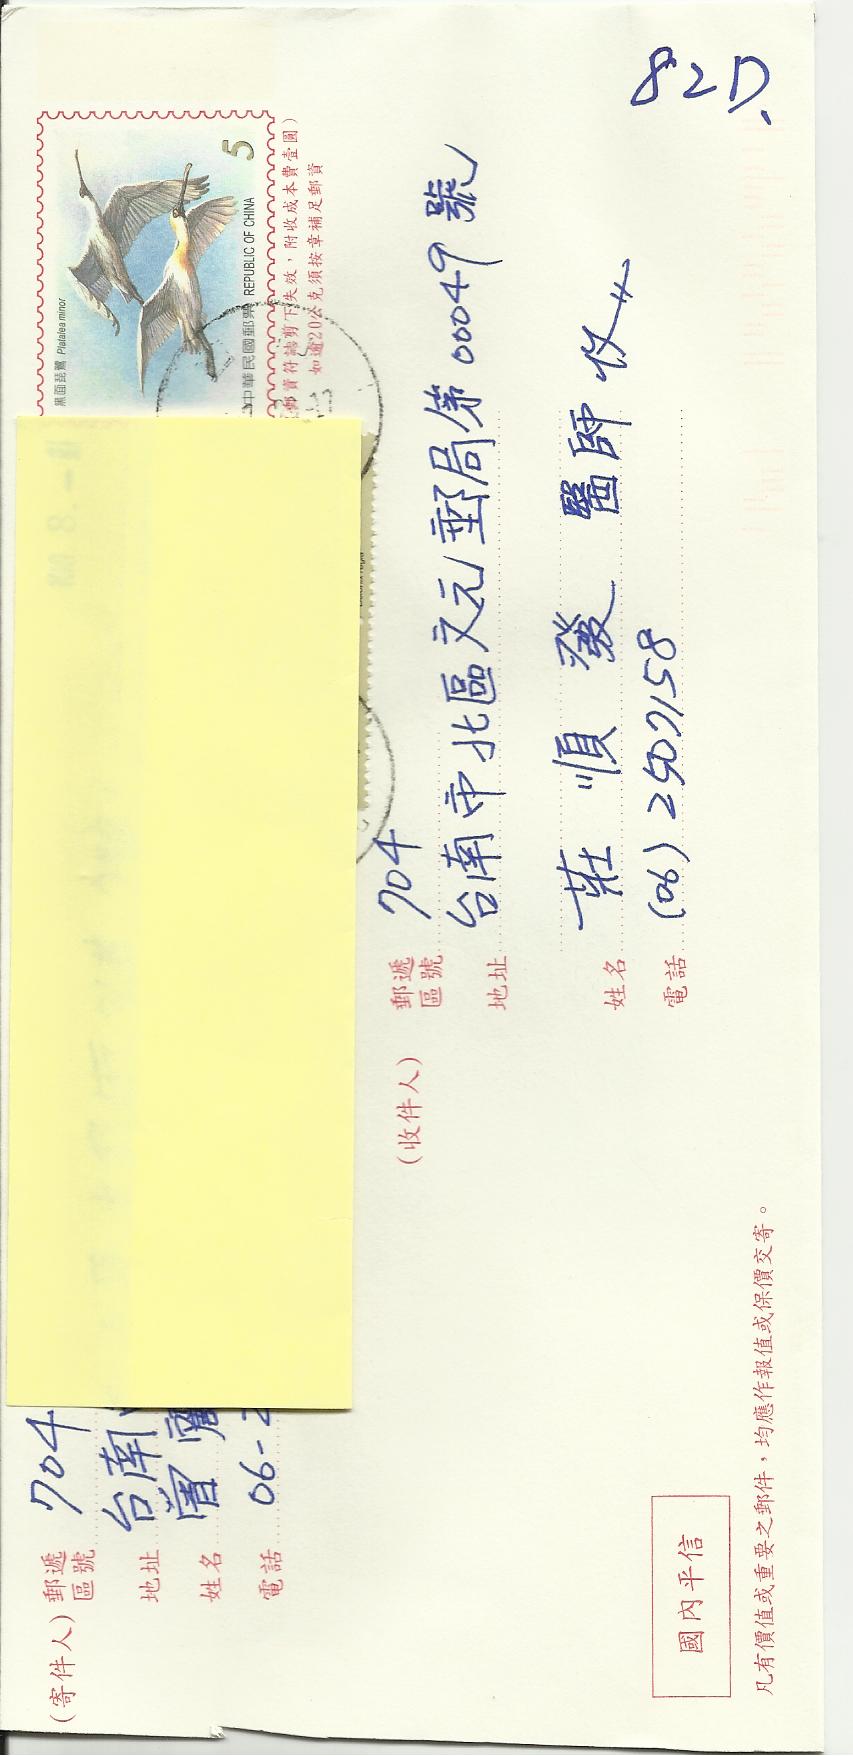 82D.
(寄件人)
郵遞區號 704
地址 台南
姓名 曾
電話 06-2
黑面琵鷺 Platalea minor
5
中華民國郵票 REPUBLIC OF CHINA
郵資符誌剪下失效,附收成本費壹圓)
如逾20公克須按章補足郵資
(收件人)
郵遞區號 704
地址 台南市北區文元郵局第00049號
姓名 莊順發 醫師 收
電話 (06) 2507158
國內平信
凡有價值或重要之郵件,均應作報值或保價交寄。